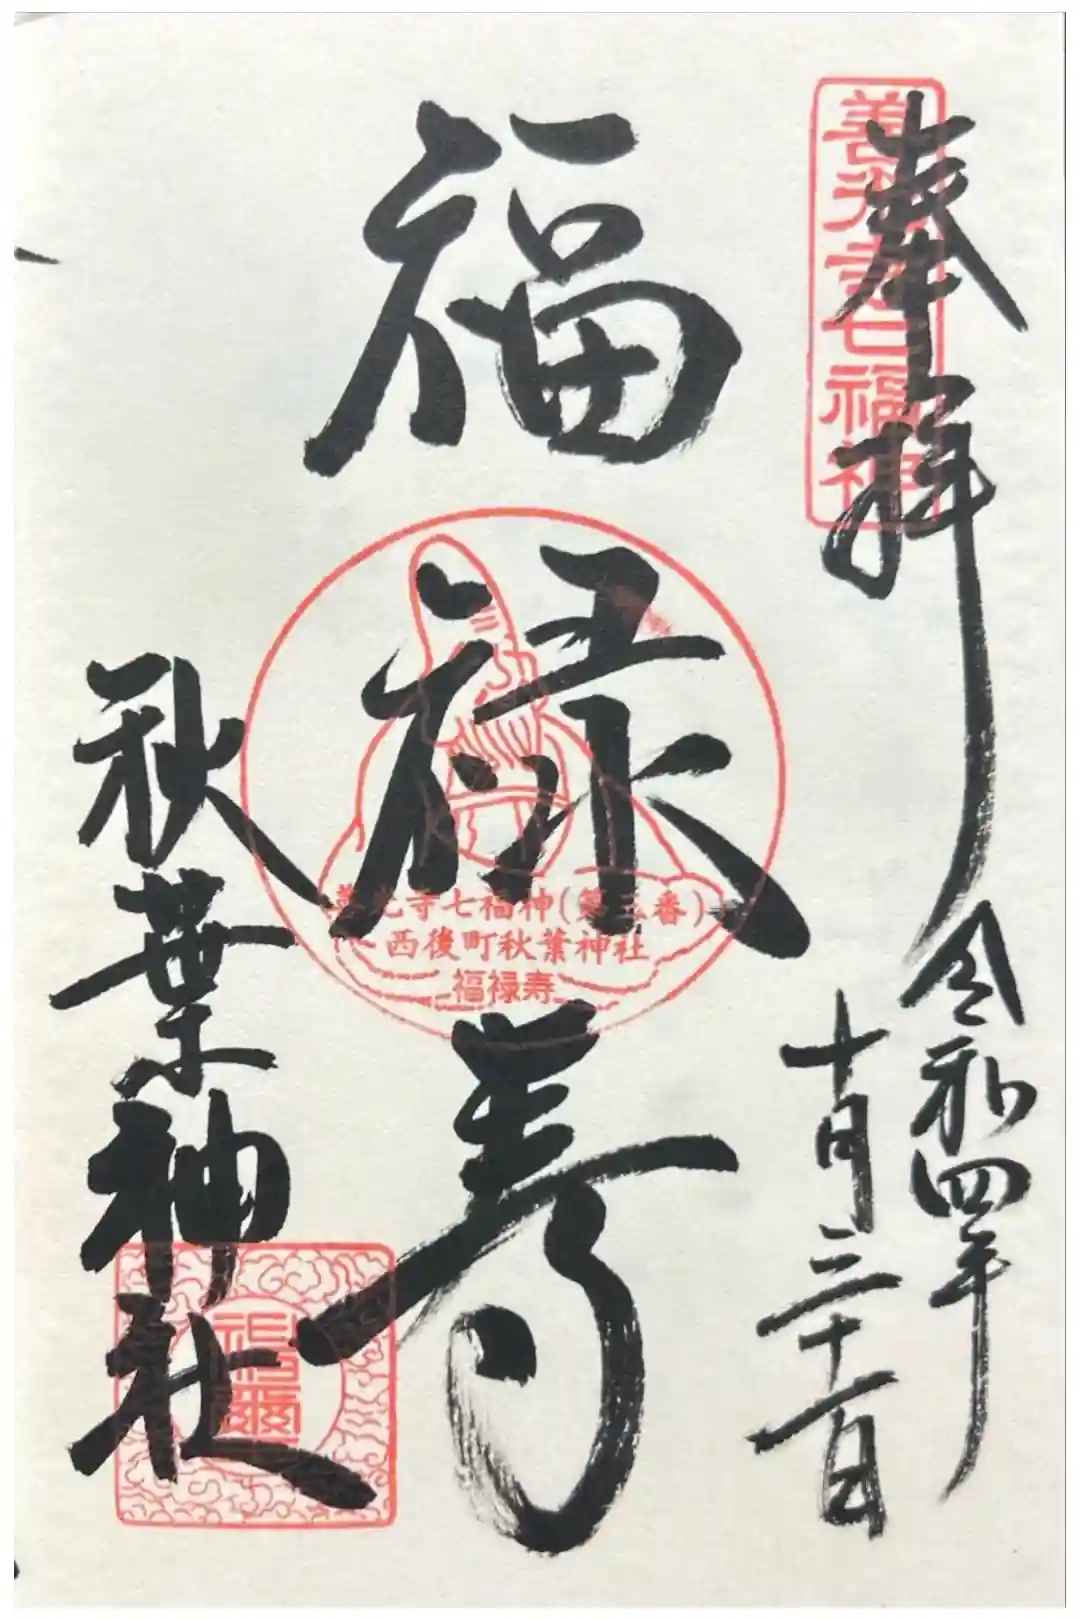 奉拝
善光寺七福神
令和四年
十月三十一日
福禄寿
善光寺七福神(第三番)
西後町秋葉神社
福禄寿
秋葉神社